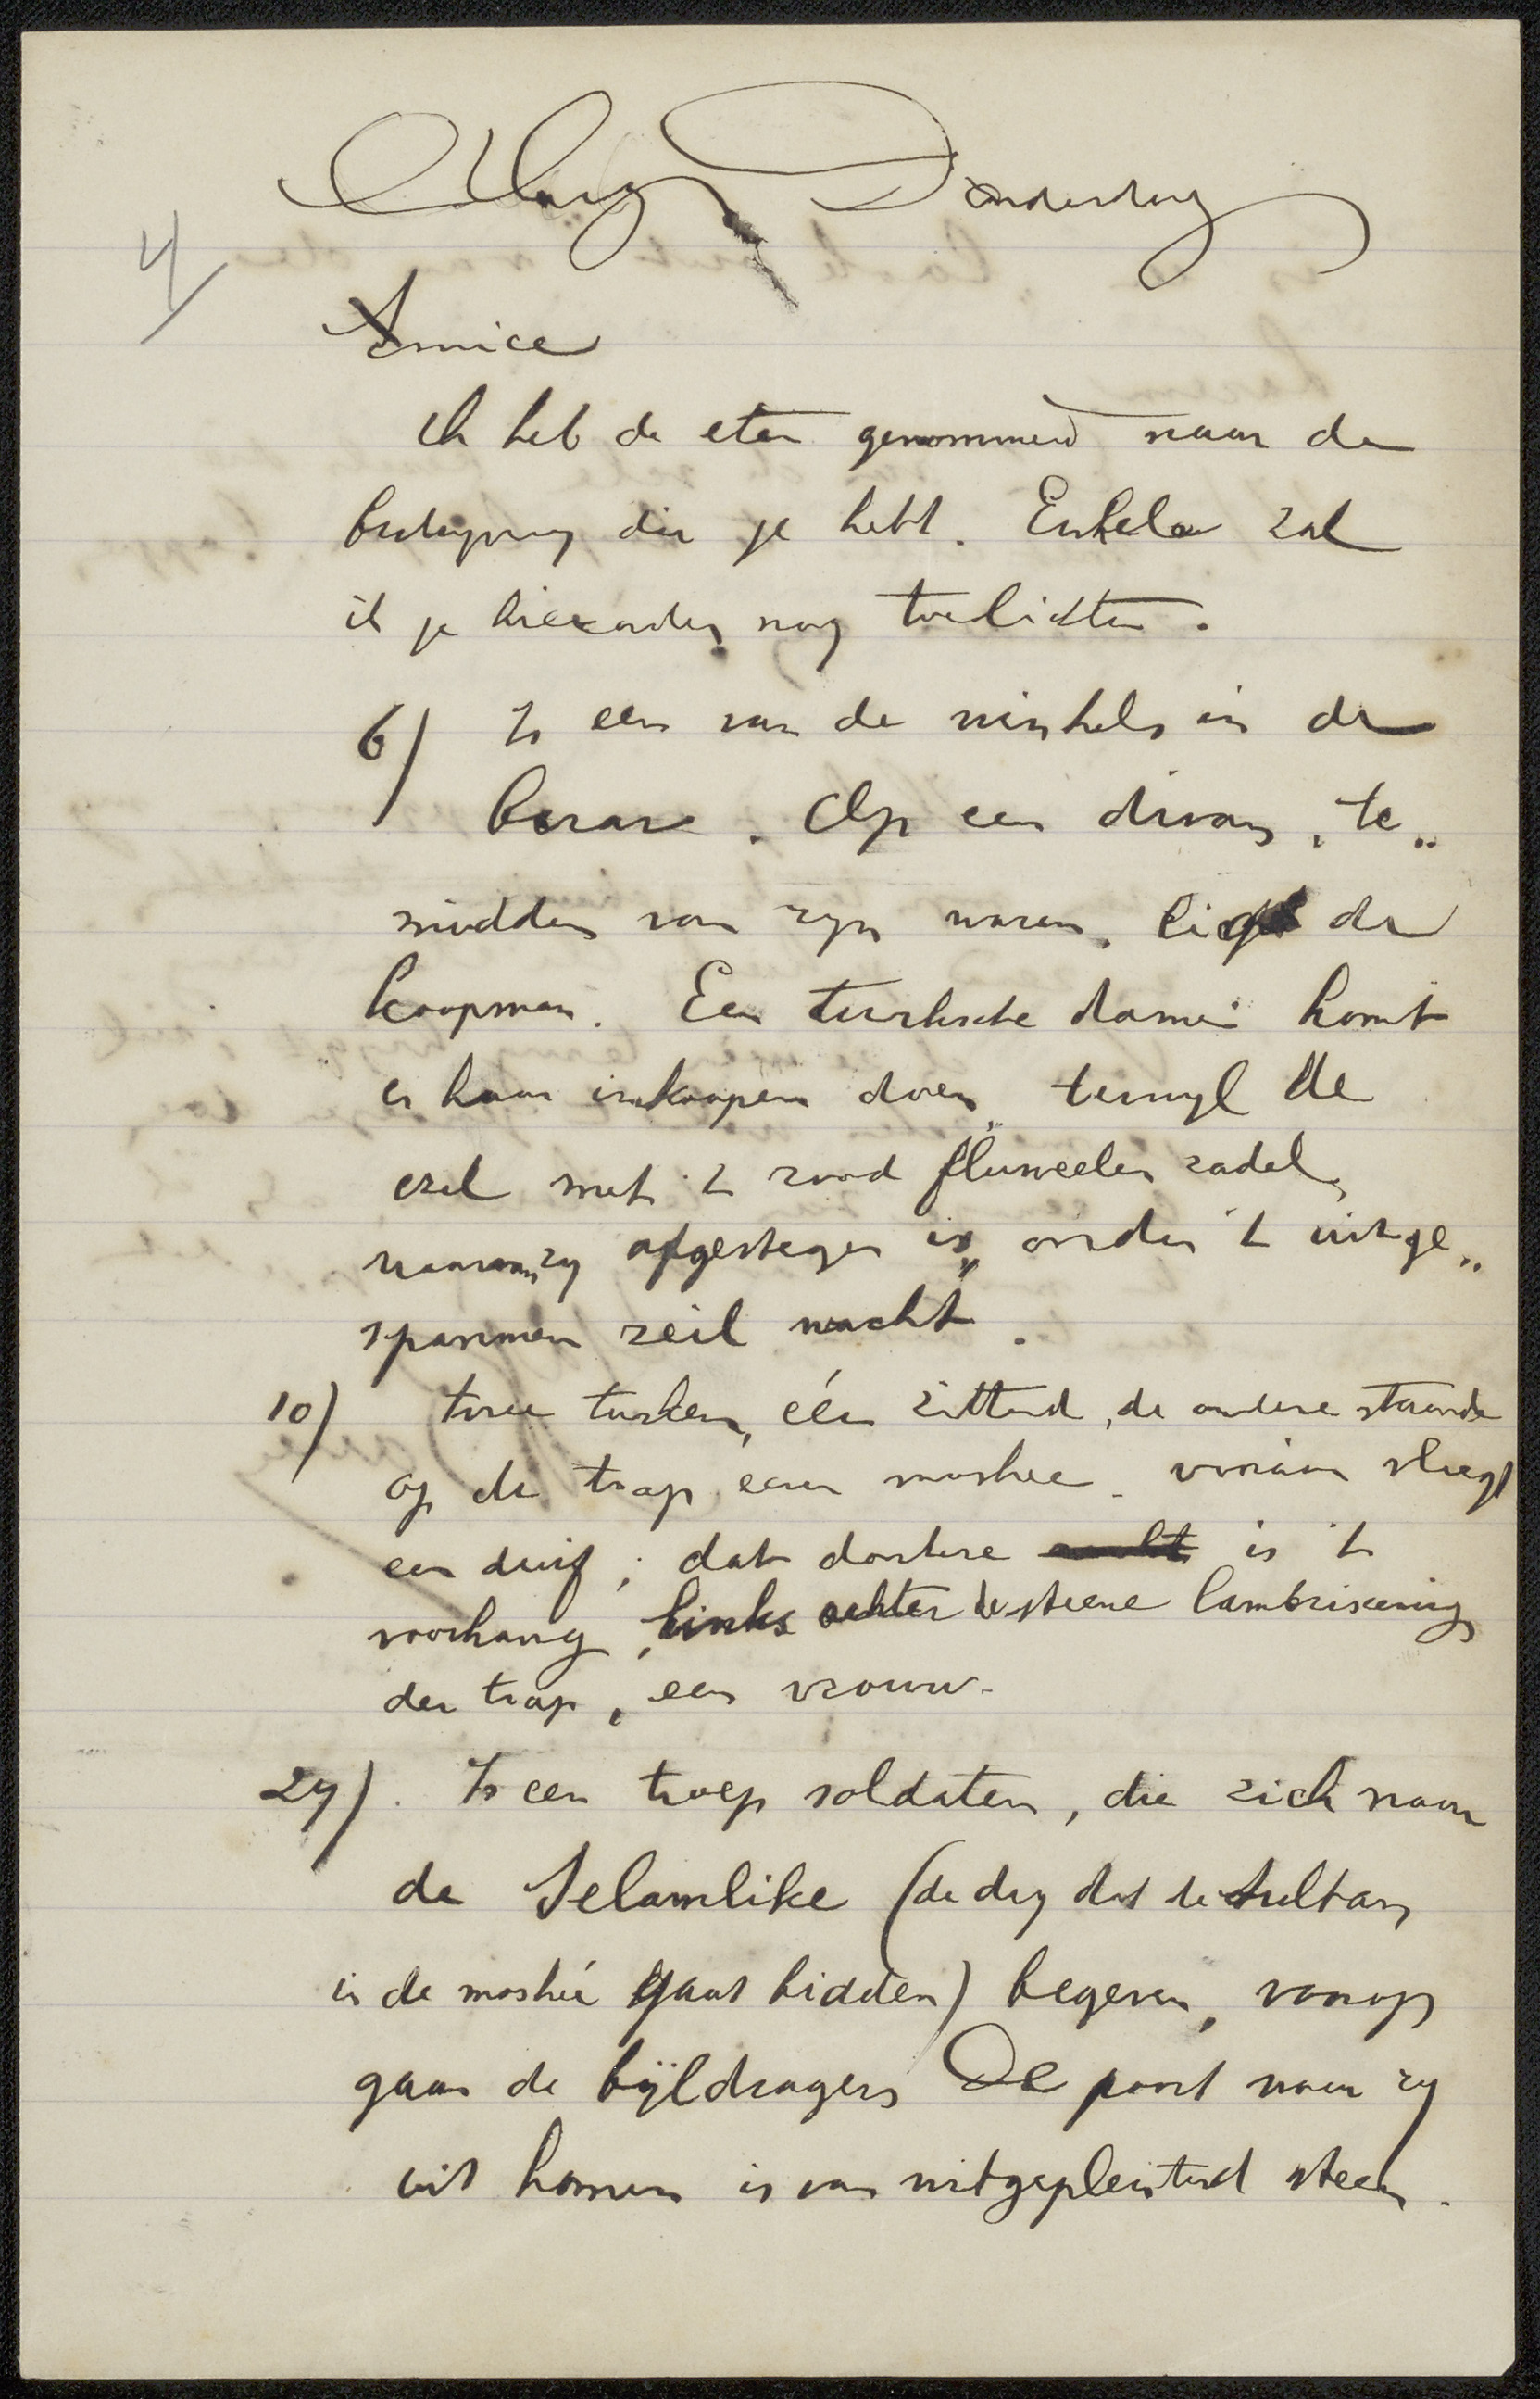 4/
Donderdag
Amice
Ik heb de etsen genommerd naar de
die je hebt. Enkele zal
ik je hieronder nog toelichten.
6) Is een van de winkels in de
bazar. Op een divan, te„
midden van zyn waren, ligt de
koopman. Een turksche dame komt
er haar inkoopen doen, terwyl de
ezel met 't rood fluweelen zadel,
waarvan zy afgestegen is, onder 't uitge„
spannen zeil wacht.
10) twee turken, eén zittend, de andere staande
op de trap eener moskee. vooraan vliegt
een duif; dat donkere is 't
voorhang, links achter de steene lambriseering
der trap, een vrouw.
24). Is een troep soldaten, die zich naar
de Selamlike (de dag dat de Sultan
in de moskeé gaat bidden) begeven, voorop
gaan de bijldragers De poort waar zy
uit komen is van witgepleisterd steen.